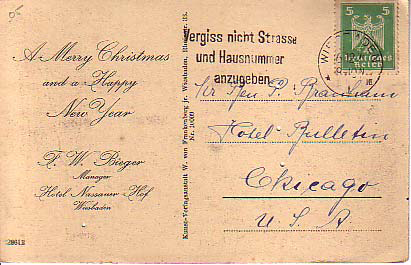 A Merry Christmas
and a Happy
New Year
F. W. Bieger
Manager
Hotel Nassauer Hof
Wiesbaden
20612
Kunst-Verlagsanstalt W. von Frankenberg jr. Wiesbaden,
Nr. 1000
Vergiss nicht Strasse
und Hausnummer
anzugeben
5 5
Deutsches
Reich
WIESBADEN
Ben
Hotel Bulletin
Chicago
U. S. A